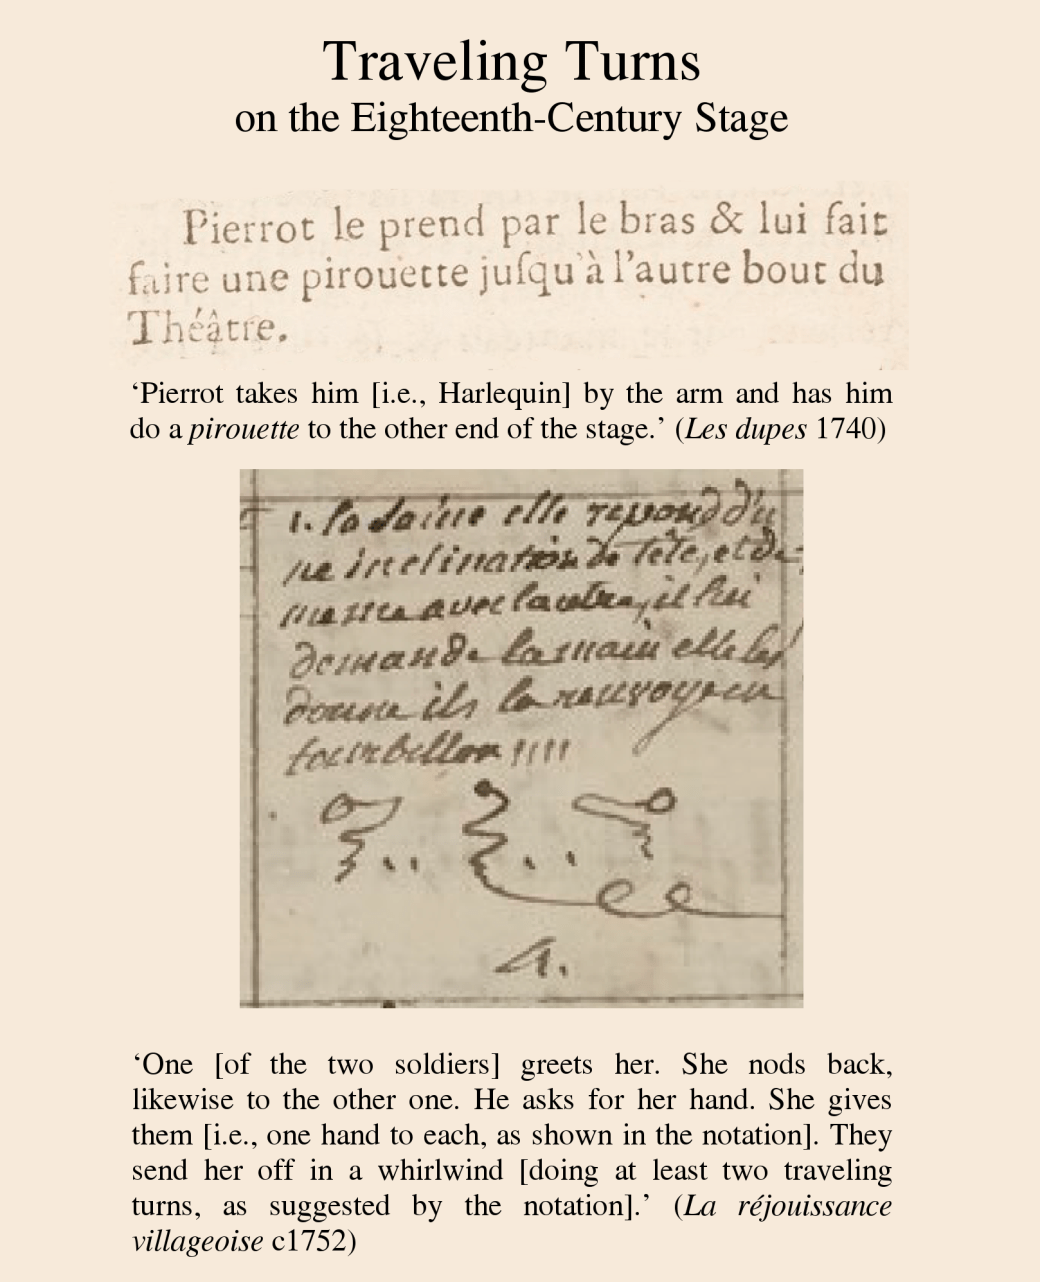 Traveling Turns
on the Eighteenth-Century Stage
Pierrot le prend par le bras & lui fait
faire une pirouette juſqu'à l'autre bout du
Théâtre.
‘Pierrot takes him [i.e., Harlequin] by the arm and has him
do a pirouette to the other end of the stage.’ (Les dupes 1740)
1. la salue elle repond d'u
ne inclination de tête, et de
mesme avec lautre, il lui
demande la main elle les
donne ils la renvoye en
tourbillon
4.
‘One [of the two soldiers] greets her. She nods back,
likewise to the other one. He asks for her hand. She gives
them [i.e., one hand to each, as shown in the notation]. They
send her off in a whirlwind [doing at least two traveling
turns, as suggested by the notation].’ (La réjouissance
villageoise c1752)